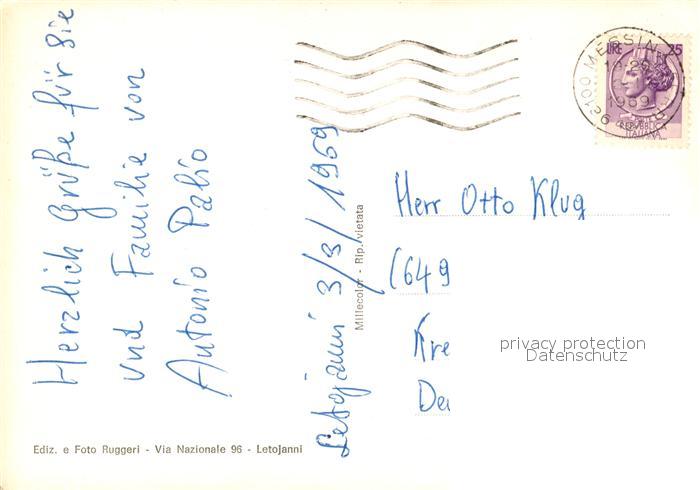 Herzlich Grüße für Sie
und Familie von
Antonio Palio
Letojanni 3/3/1969
Millecolor - Rip. vietata
Ediz. e Foto Ruggeri - Via Nazionale 96 - Letojanni
LIRE 25
REPVBBLICA
ITALIANA
98100 MESSINA
1969
Herr Otto Klug
(649
Kre
De
privacy protection
Datenschutz